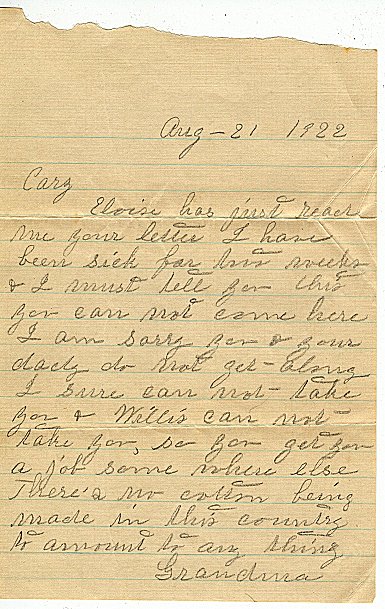 Aug - 21 1922
Cary
Eloise has just read
me your letter I have
been sick for two weeks
& I must tell you this
you can not come here
I am sorry you & your
dady do not get along
I sure can not take
you & Willis can not
take you, so you get you
a job some where else
There's no cotton being
made in this country
to amount to any thing
Grandma